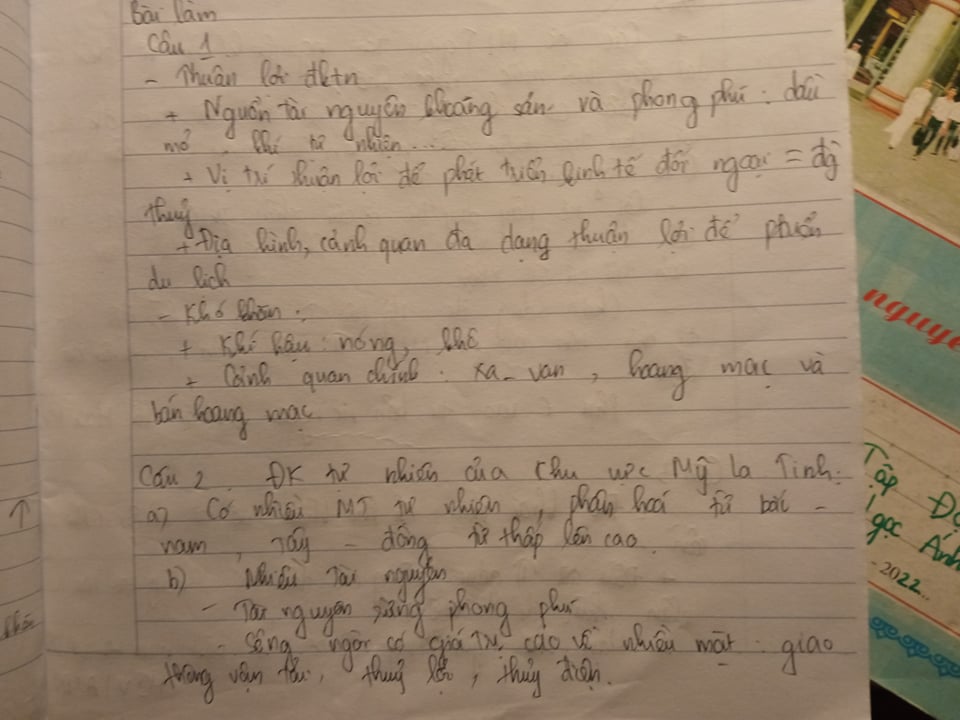 Bài làm
Câu 1
- Thuận lợi đktn
+ Nguồn tài nguyên khoáng sản và phong phú : dầu
mỏ , khí tự nhiên ...
+ Vị trí thuận lợi để phát triển kinh tế đối ngoại = đg
thuỷ
+ Địa hình, cảnh quan đa dạng thuận lợi để
du lịch
- Khó khăn :
+ Khí hậu : nóng, khô
+ Cảnh quan chính : xa-van , hoang mạc và
bán hoang mạc
Câu 2 . ĐK tự nhiên của khu vực Mỹ La Tinh :
a) Có nhiều MT tự nhiên , phân hoá từ bắc -
nam , Tây - đông từ thấp lên cao
b) Nhiều Tài nguyên
- Tài nguyên rừng phong phú
- Sông ngòi có giá trị cao về nhiều mặt : giao
thông vận tải, thuỷ lợi , thủy điện.
nguyễ
Tập Đo
Ngọc Ánh
- 2022